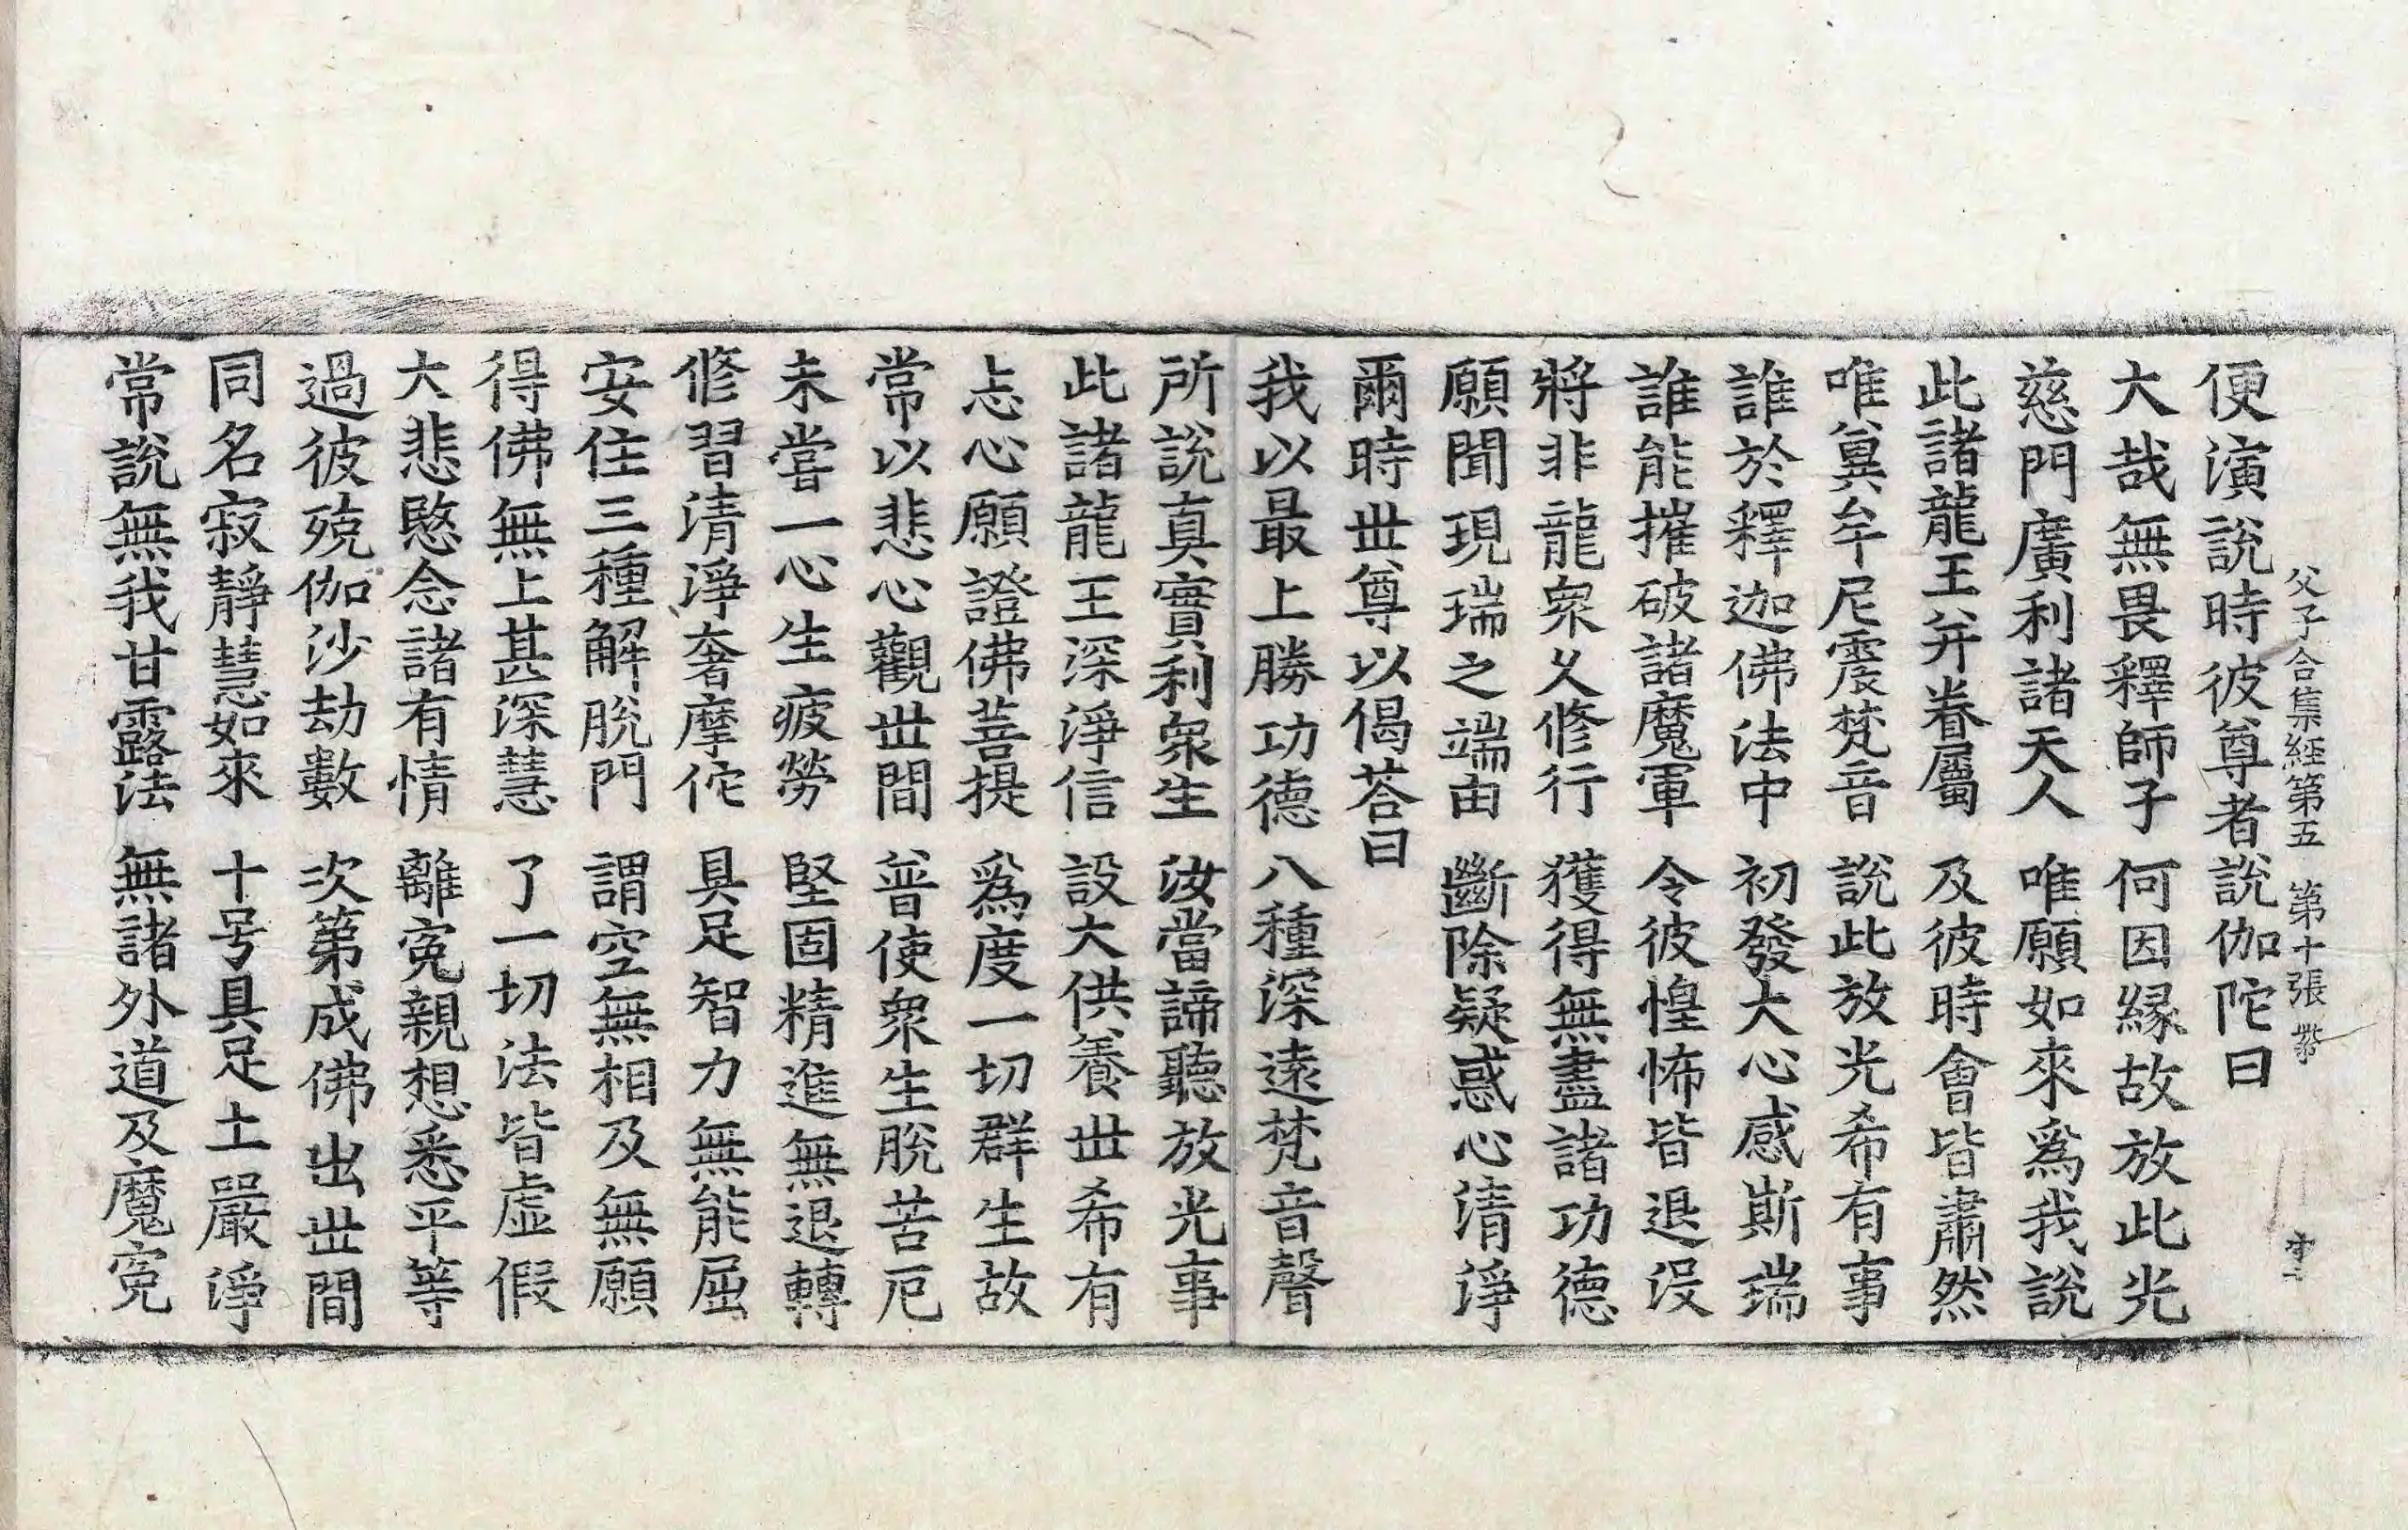 父子合集經第五 第十張
便演說時彼尊者說伽陀曰
大哉無畏釋師子 何因緣故放此光
慈門廣利諸天人 唯願如來爲我說
此諸龍王并眷屬 及彼時會皆肅然
唯兾牟尼震梵音 說此放光希有事
誰於釋迦佛法中 初發大心感斯瑞
誰能摧破諸魔軍 令彼惶怖皆退没
將非龍衆久修行 獲得無盡諸功德
願聞現瑞之端由 斷除疑惑心清淨
爾時丗尊以偈荅曰
我以最上勝功德 八種深遠梵音聲
所說真實利衆生 汝當諦聽放光事
此諸龍王深淨信 設大供養丗希有
志心願證佛菩提 爲度一切群生故
常以悲心觀丗間 普使衆生脫苦厄
未嘗一心生疲勞 堅固精進無退轉
修習清淨奢摩佗 具足智力無能屈
安住三種解脫門 謂空無相及無願
得佛無上甚深慧 了一切法皆虛假
大悲愍念諸有情 離寃親想悉平等
過彼殑伽沙劫數 次第成佛出丗間
同名寂靜慧如來 十号具足土嚴淨
常說無我甘露法 無諸外道及魔寃